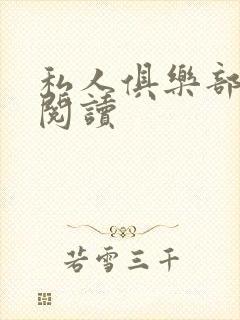 私人俱樂部
閱讀
若雪三千